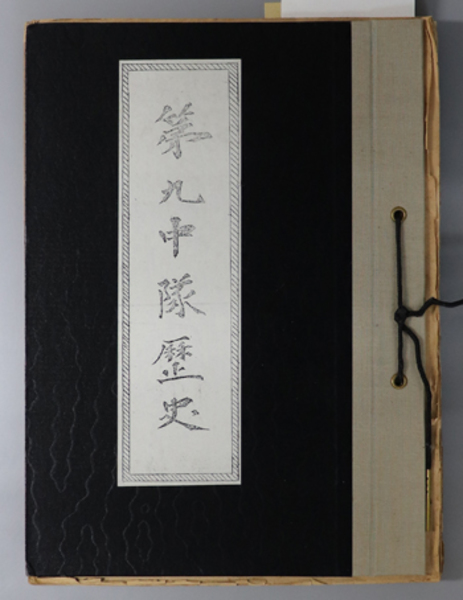 第九中隊歷史